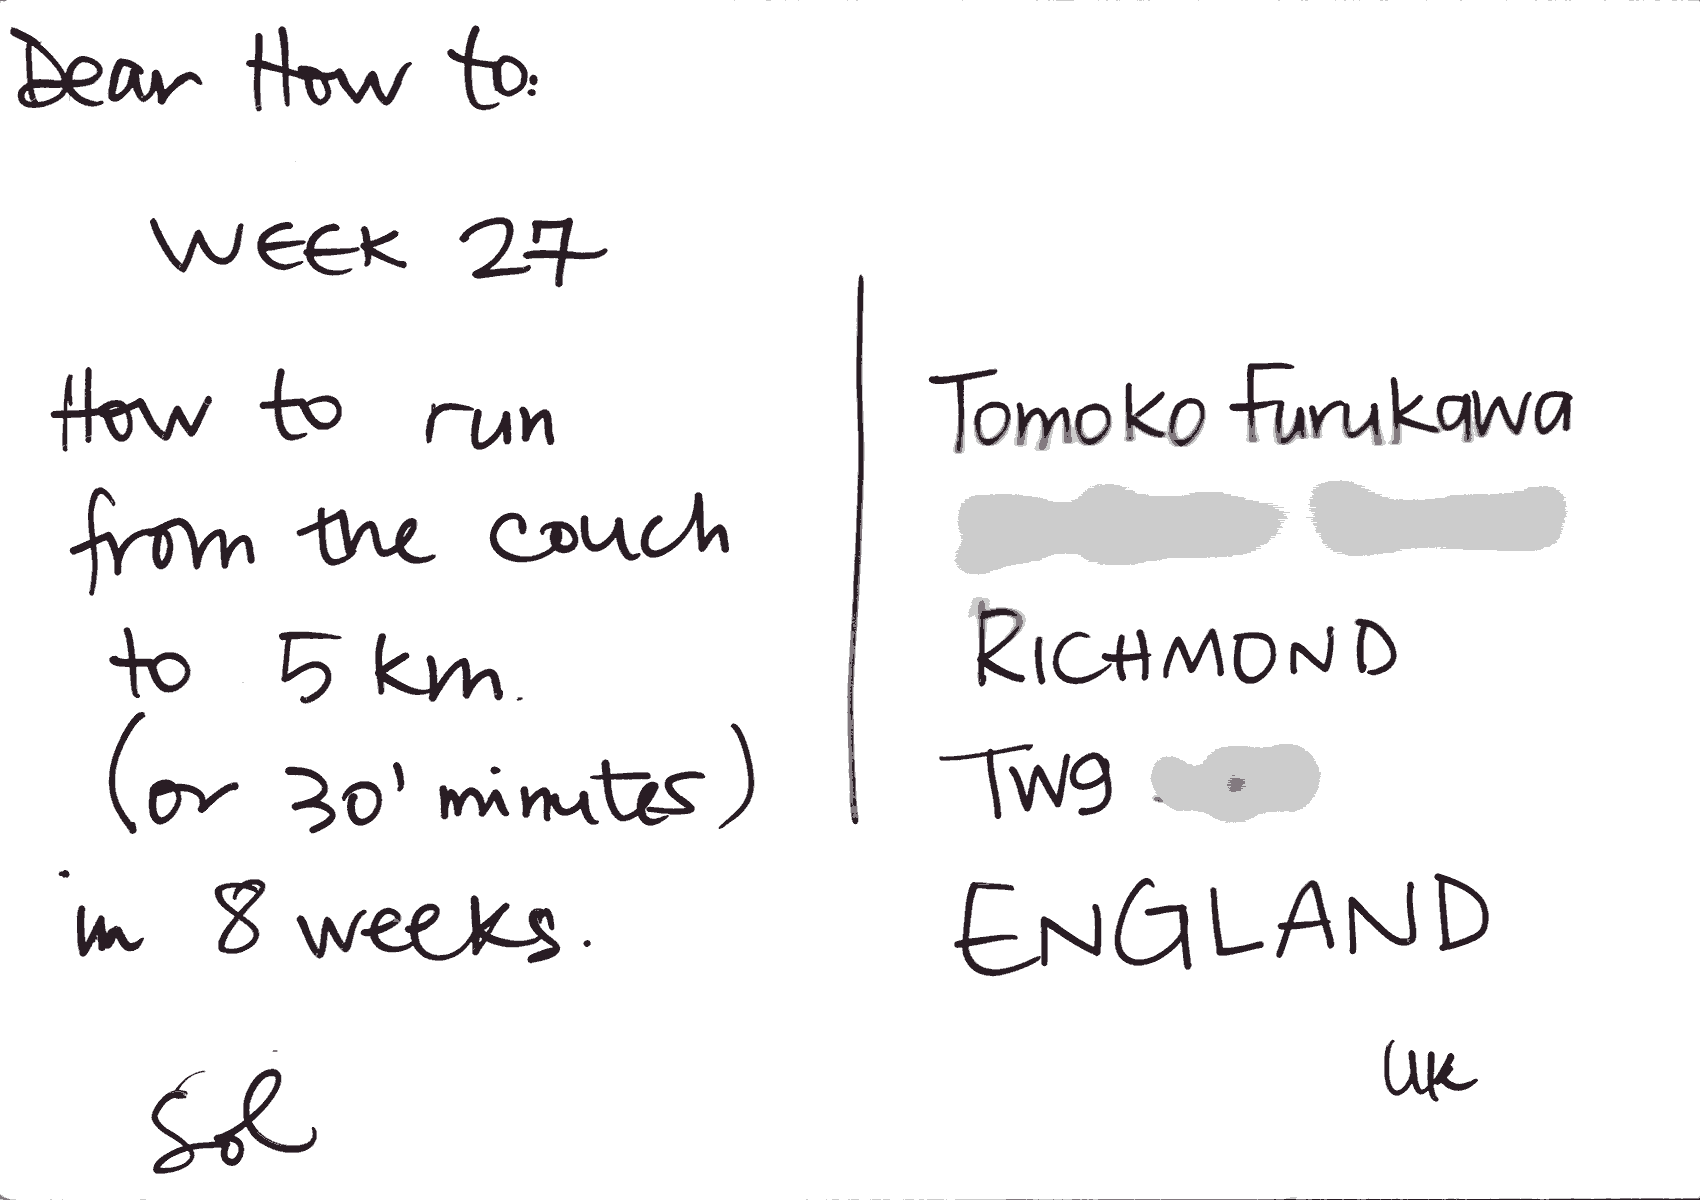 Dear How to:
WEEK 27
How to run
from the couch
to 5 km.
(or 30' minutes)
in 8 weeks.
Sol
Tomoko Furukawa
RICHMOND
TW9
ENGLAND
UK